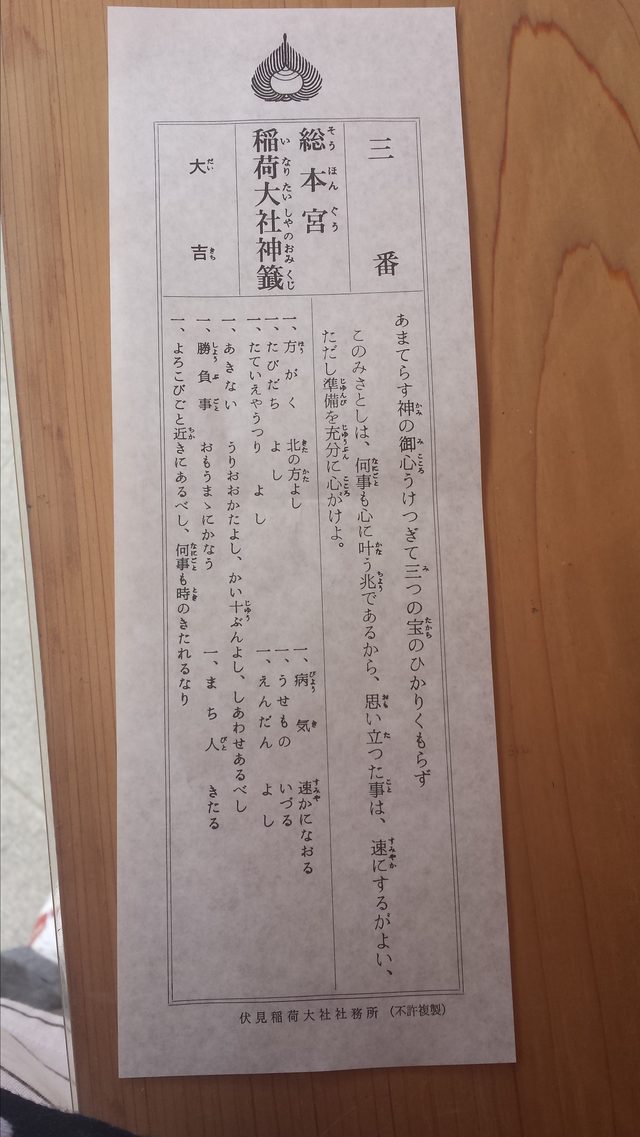 三番
総本宮
稲荷大社神籤
大吉
あまてらす神の御心うけつぎて三つの宝のひかりくもらず
このみさとしは、何事も心に叶う兆であるから、思い立つた事は、速にするがよい、
ただし準備を充分に心がけよ。
一、方がく 北の方よし
一、たびだち よし
一、たていえやうつり よし
一、病気 速かになおる
一、うせもの いづる
一、えんだん よし
一、あきない うりおおかたよし、かい十ぶんよし、しあわせあるべし
一、勝負事 おもうまゝにかなう
一、まち人 きたる
一、よろこびごと近きにあるべし、何事も時のきたれるなり
伏見稲荷大社社務所 (不許複製)